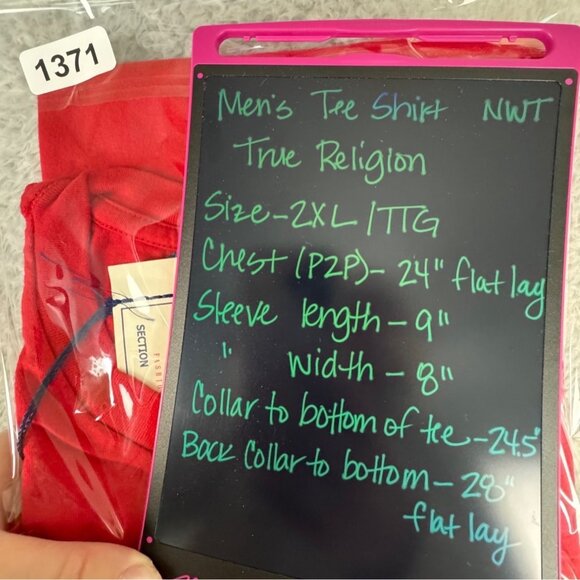 1371
Men's Tee Shirt NWT
True Religion
Size-2XL/TTG
Chest (P2P)- 24" flat lay
Sleeve length - 9"
" Width - 8"
Collar to bottom of tee - 24.5"
Back Collar to bottom - 28"
flat lay
SECTION